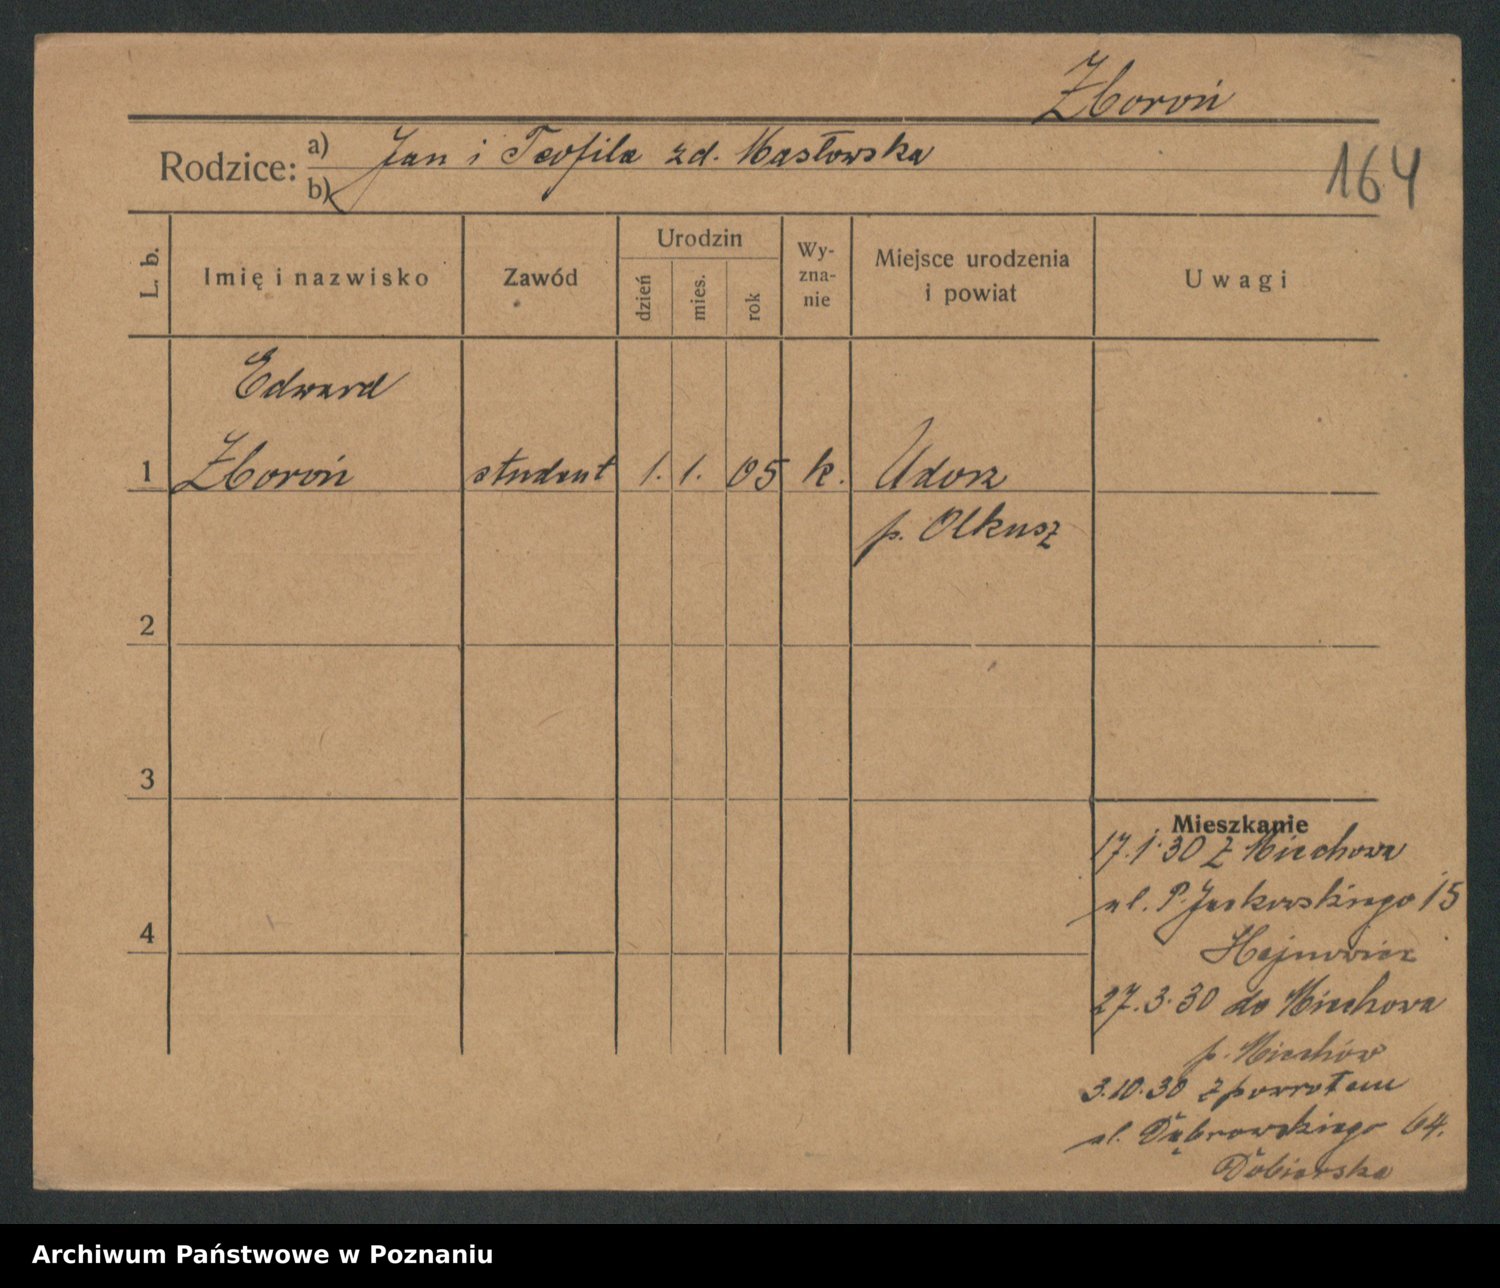 Zboroń
Rodzice: a) Jan i Teofila zd. Masłowska
b)
164
L. b.
Imię i nazwisko
Zawód
Urodzin
dzień
mies.
rok
Wy-
zna-
nie
Miejsce urodzenia
i powiat
Uwagi
Edward
1 Zboroń student 1. 1. 05 k. Udorz
p. Olkusz
2
3
4
Mieszkanie
17.1.30 z Miechowa
ul. P. Jackowskiego 15
27.3.30 do Miechowa
p. Miechów
3.10.30 z powrotem
ul. Dąbrowskiego 64.
Archiwum Państwowe w Poznaniu